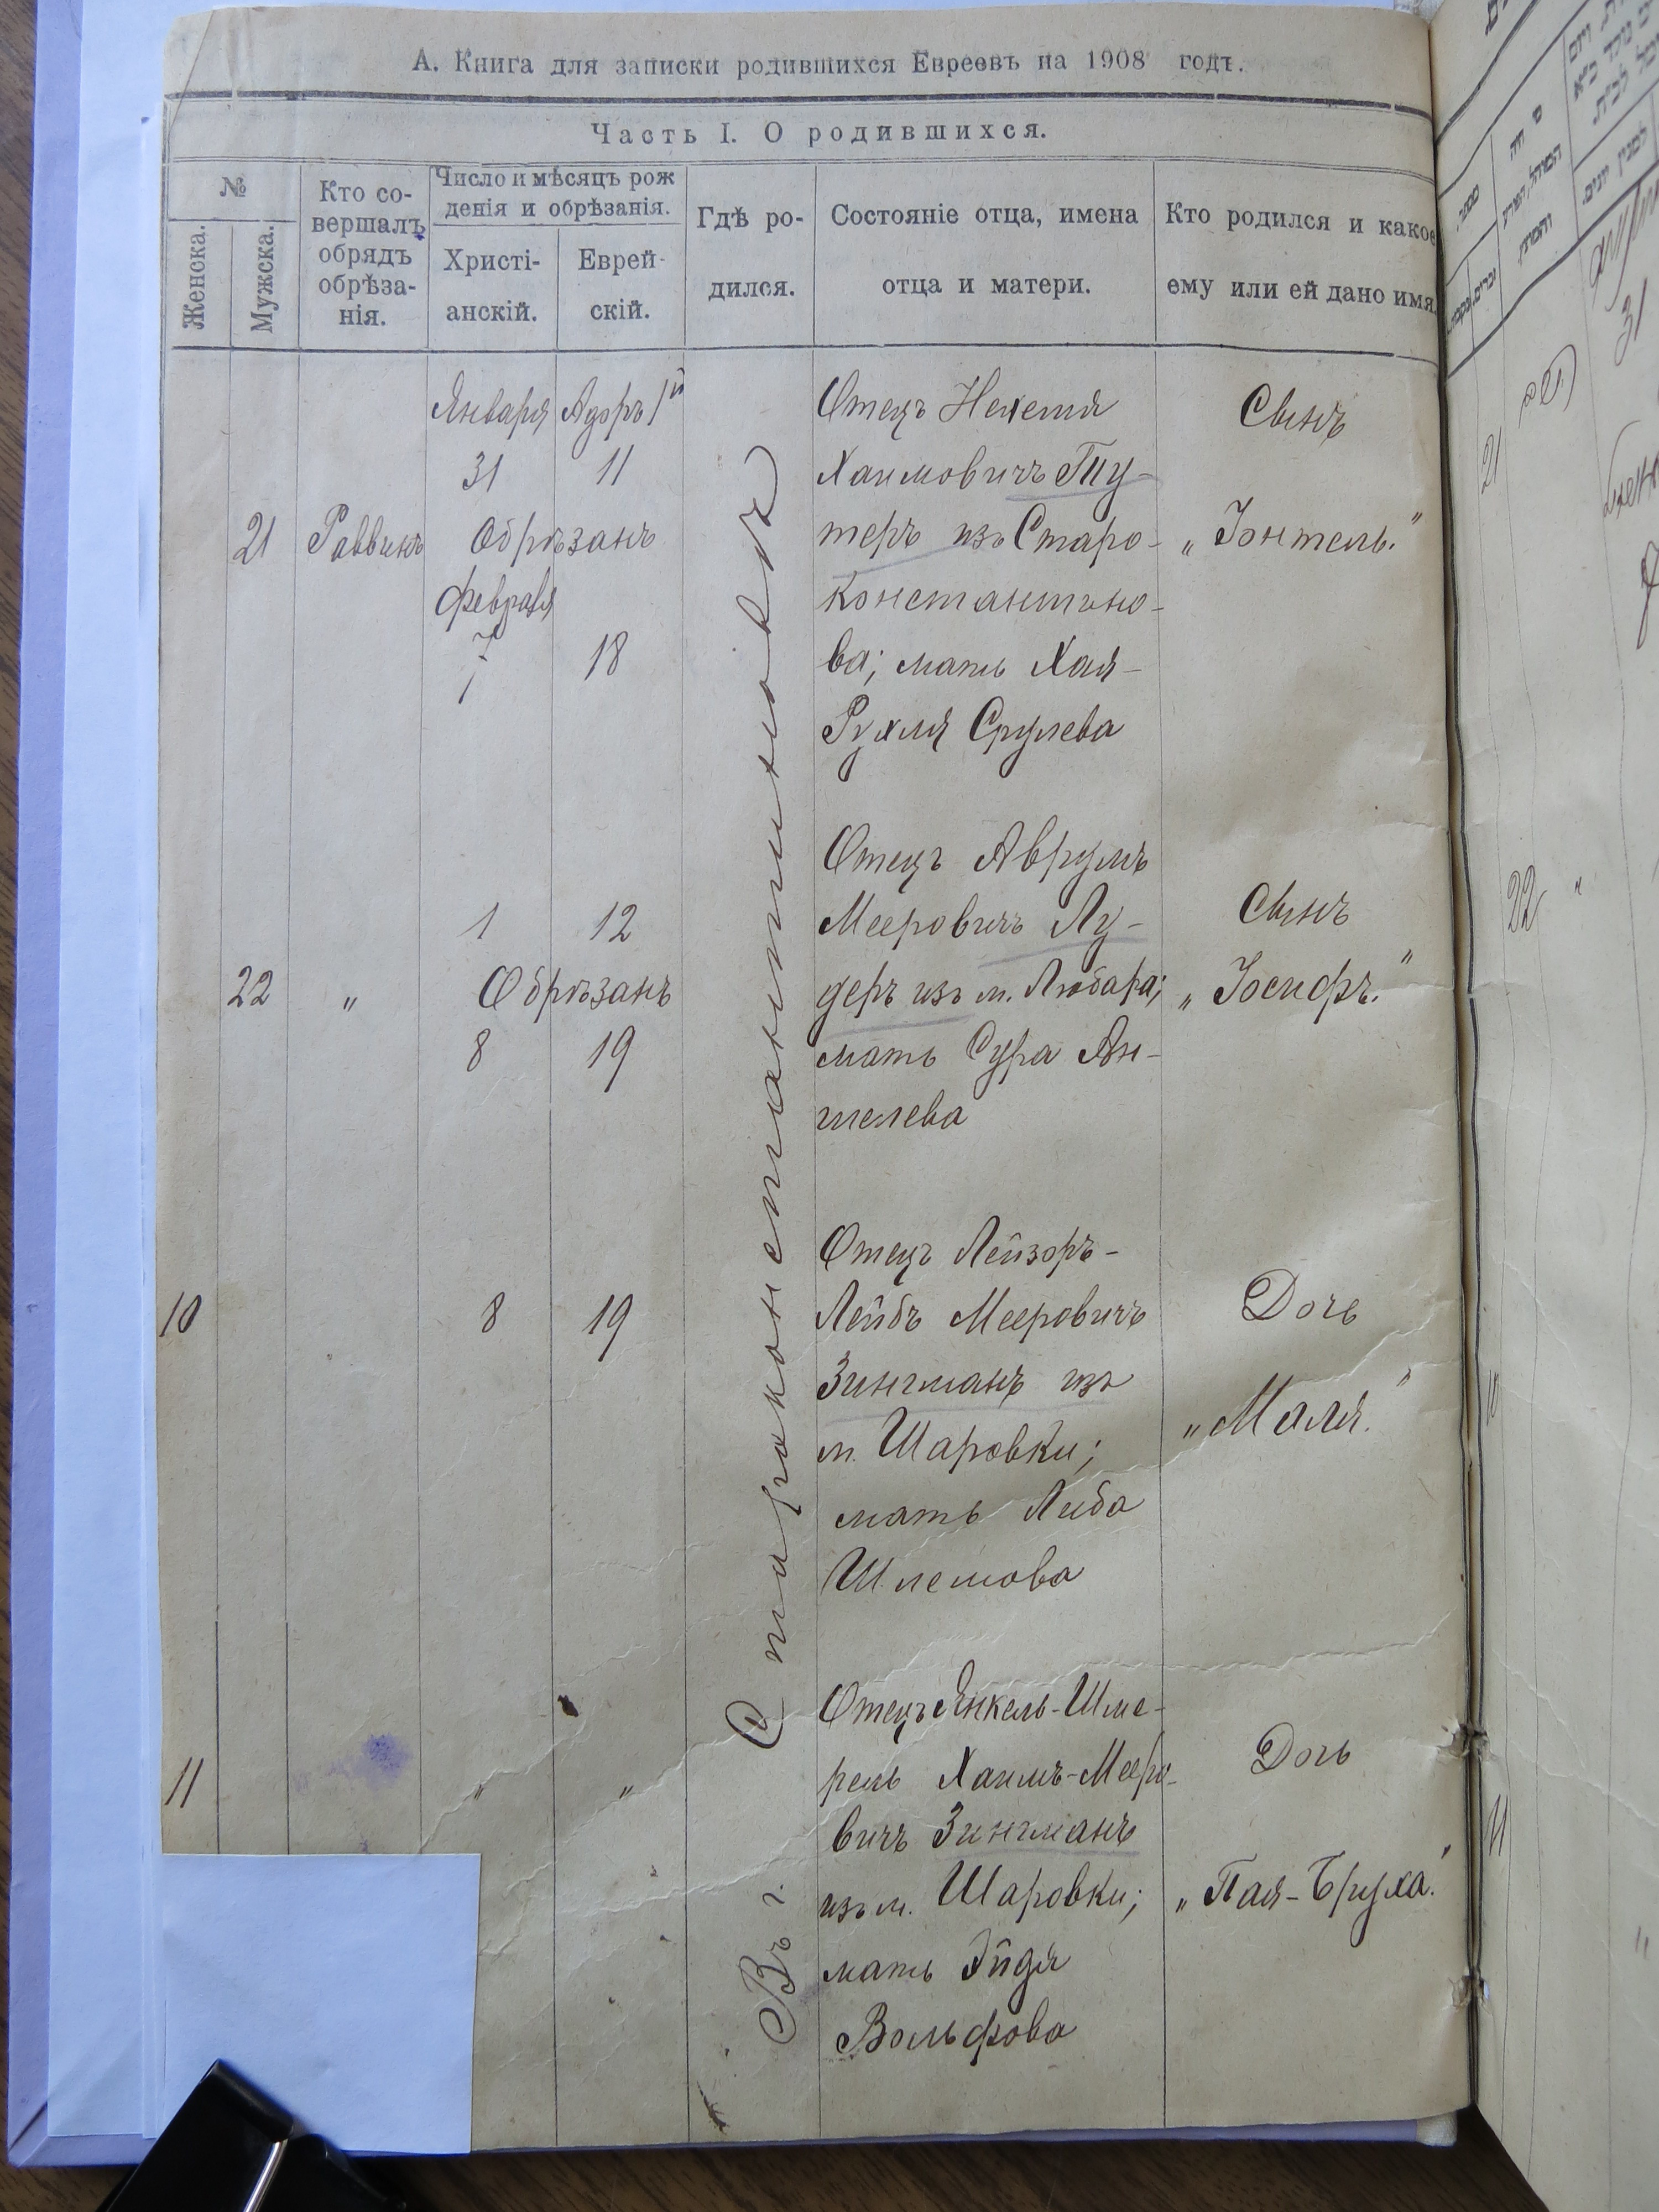 А. Книга для записки родившихся Евреевъ на 1908 годъ.
Часть I. О родившихся.
№
Женска.
Мужска.
Кто со-
вершалъ
обрядъ
обрѣза-
нія.
Число и мѣсяцъ рож
денія и обрѣзанія.
Христі-
анскій.
Еврей-
скій.
Гдѣ ро-
дился.
Состояніе отца, имена
отца и матери.
Кто родился и какое
ему или ей дано имя.
Въ г. Староконстантиновѣ
21
Раввинъ
Января Адоръ 1й
31 11
Обрѣзанъ
февраля
7 18
Отецъ Нехемія
Хаимовичъ Пу-
теръ изъ Старо-
константино-
ва; мать Хая-
Рухля Срулева
Сынъ
„Іонтель."
22
"
1 12
Обрѣзанъ
8 19
Отецъ Аврумъ
Мееровичъ Лу-
деръ изъ м. Любара;
мать Сура Ан-
шелева
Сынъ
„Іосифъ."
10
8 19
Отецъ Лейзоръ-
Лейбъ Мееровичъ
Зингманъ изъ
м. Шаровки;
мать Либа
Шлемова
Дочь
„Маля."
11
" "
Отецъ Янкель-Шме-
рель Хаимъ-Мееро-
вичъ Зингманъ
изъ м. Шаровки;
мать Эйдя
Вольфова
Дочь
„Пая-Бруха."
21
22
"
10
11
"
31